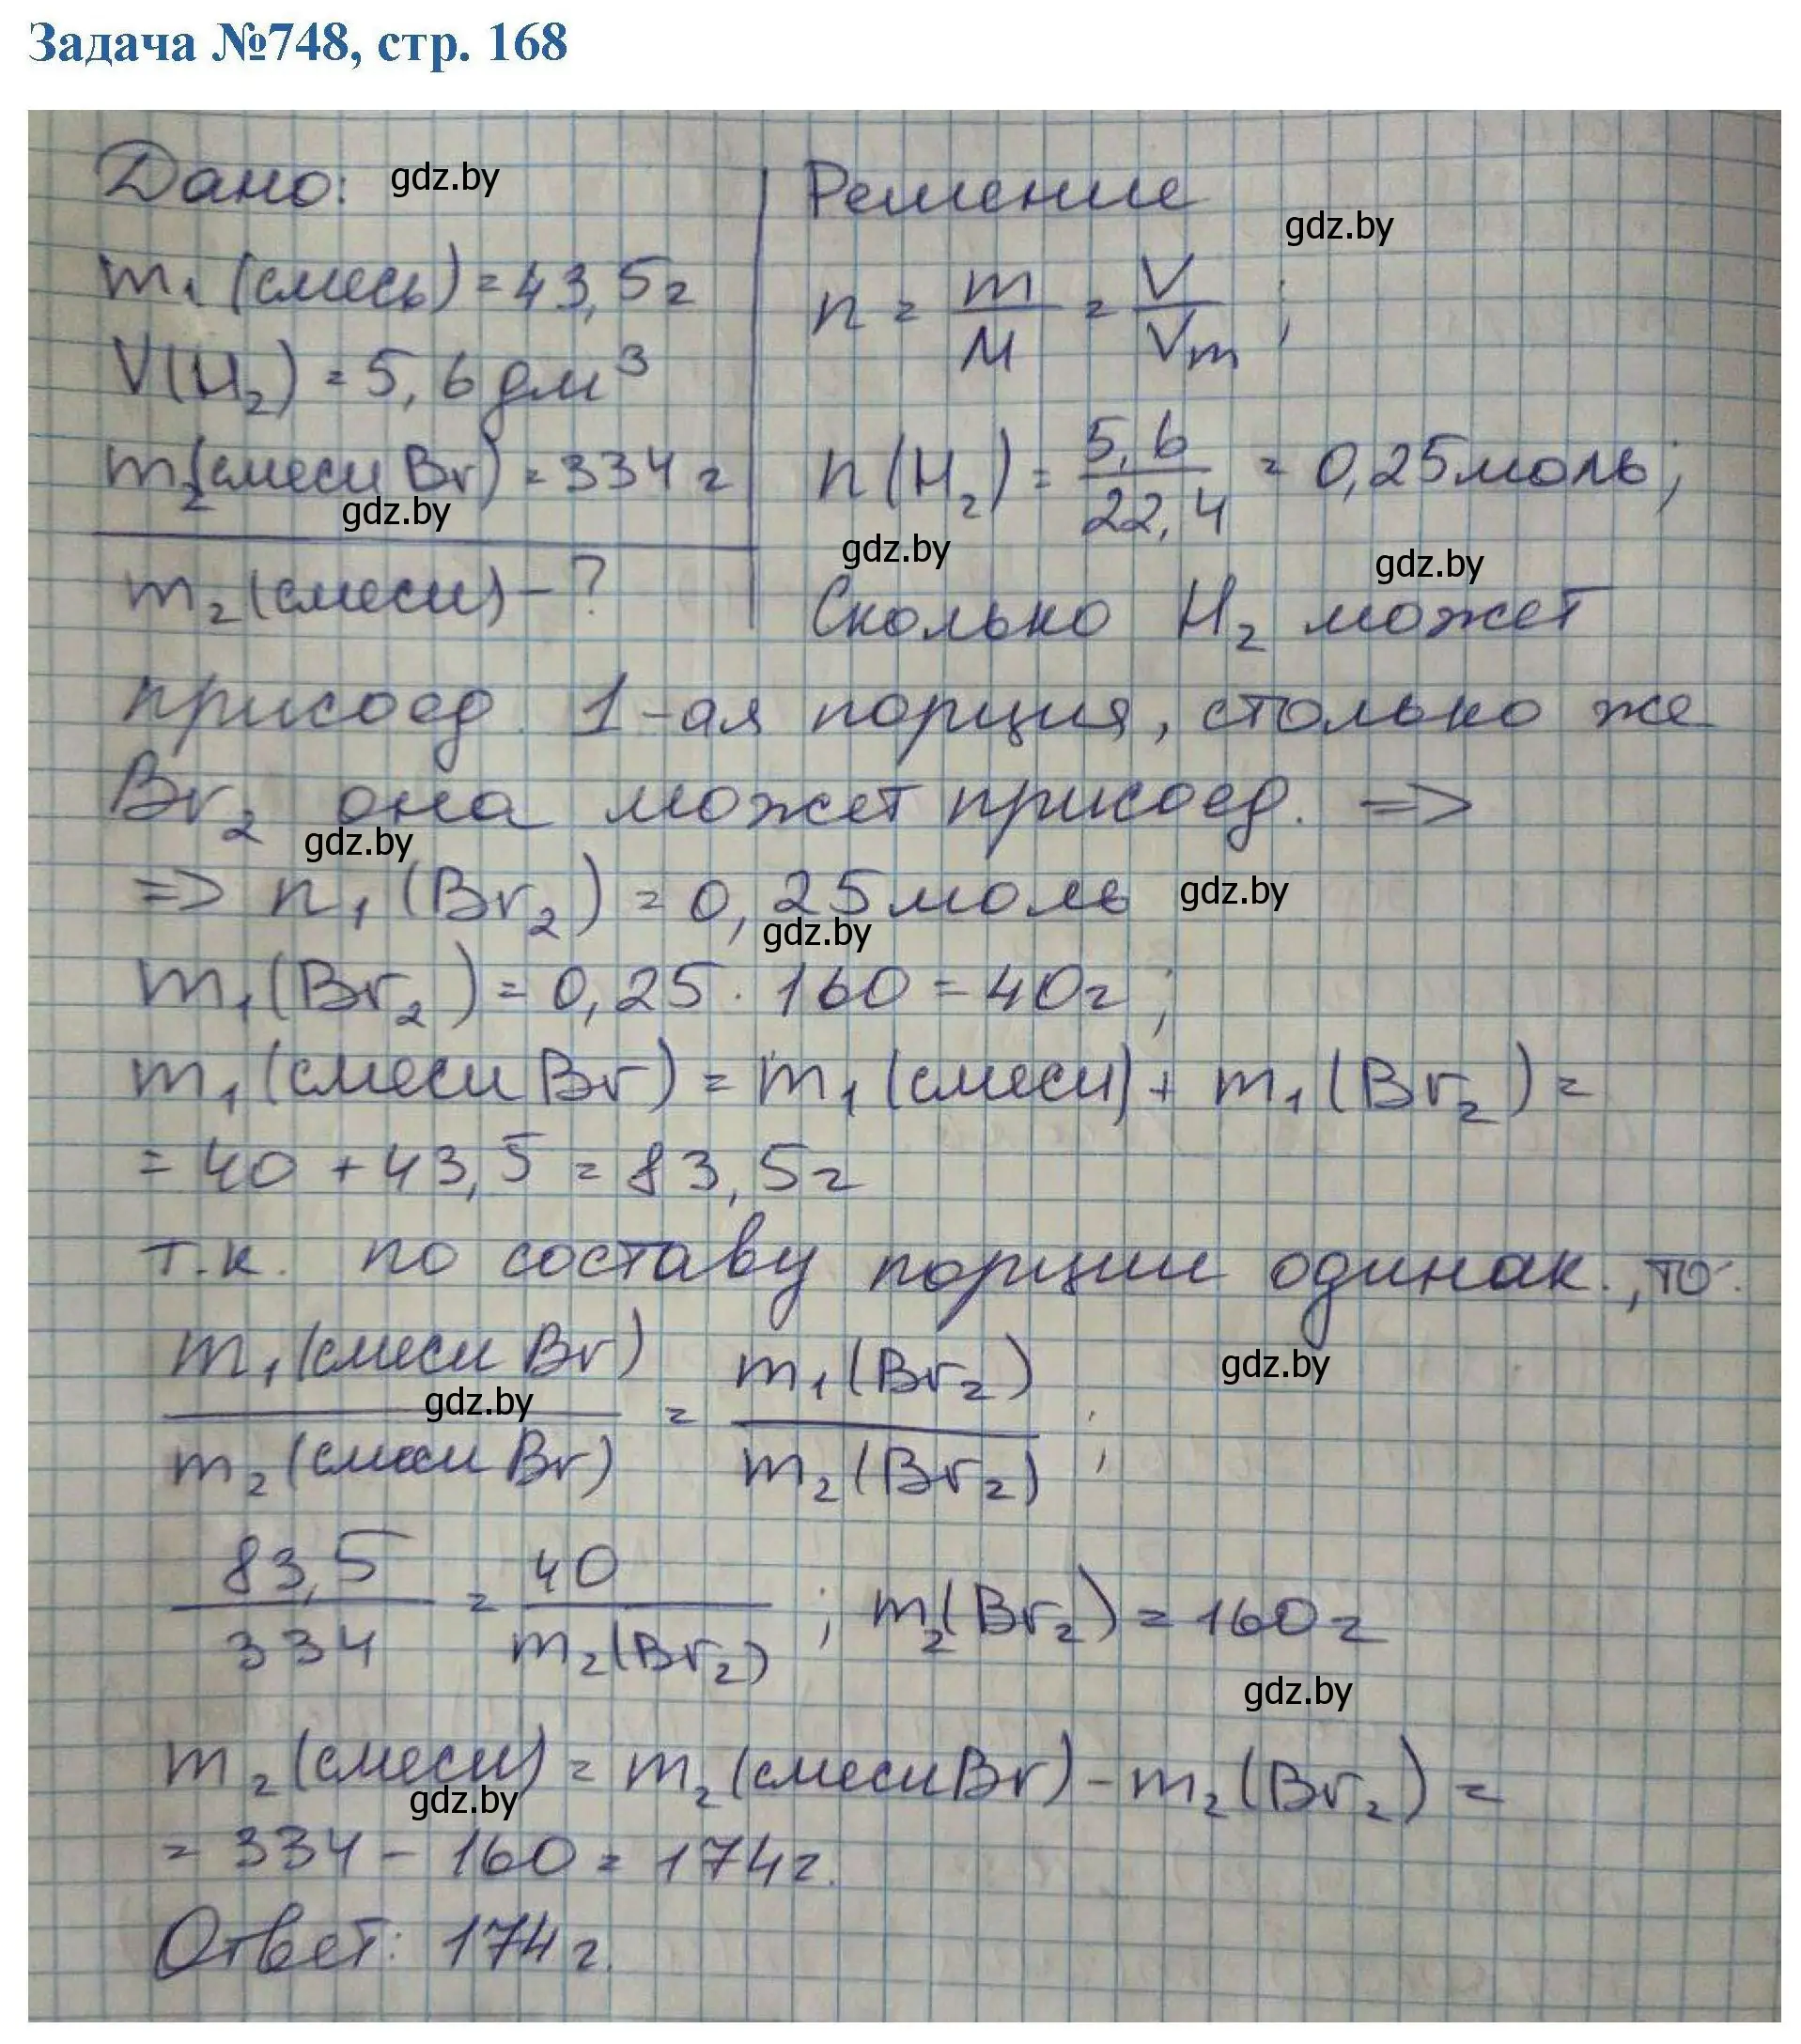 Задача №748, стр. 168
Дано: gdz.by
Решение
gdz.by
m₁ (смесь) = 43,5г
n = m/M = V/Vm ;
V(H₂) = 5,6 дм³
m₂(смеси Br) = 334 г
n(H₂) = 5,6/22,4 = 0,25моль;
gdz.by
gdz.by
gdz.by
m₂ (смеси) - ?
Сколько H₂ может
присоед. 1-ая порция, столько же
Br₂ она может присоед. =>
gdz.by
=> n₁ (Br₂) = 0,25моль
gdz.by
gdz.by
m₁(Br₂) = 0,25 · 160 = 40г ;
m₁ (смеси Br) = m₁ (смеси) + m₁ (Br₂) =
= 40 + 43,5 = 83,5г
т.к. по составу порции одинак., то:
m₁(смеси Br)/m₂(смеси Br) = m₁(Br₂)/m₂(Br₂) ;
gdz.by
gdz.by
83,5/334 = 40/m₂(Br₂) ; m₂(Br₂) = 160г
gdz.by
m₂ (смеси) = m₂ (смеси Br) - m₂ (Br₂) =
gdz.by
= 334 - 160 = 174г.
Ответ: 174г.